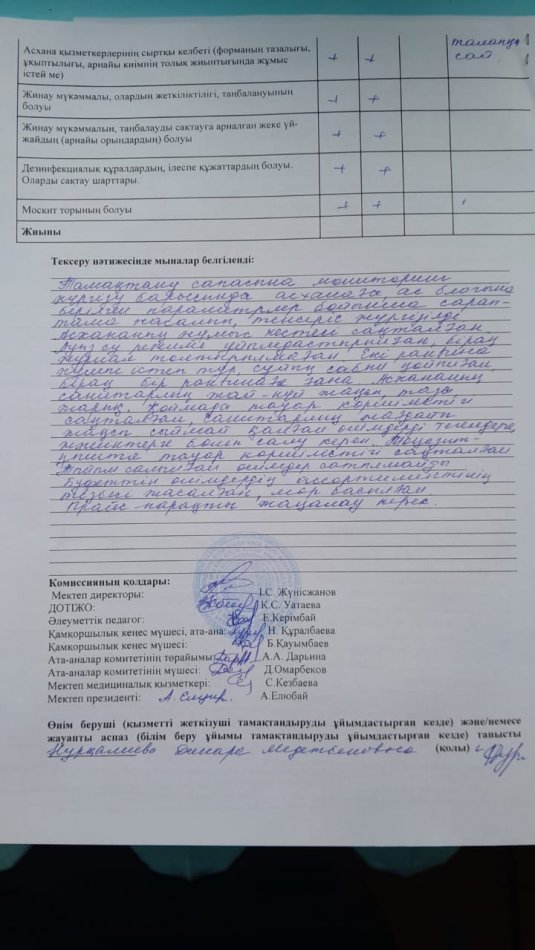 Асхана қызметкерлерінің сыртқы келбеті (форманың тазалығы, ұқыптылығы, арнайы киімнің толық жиынтығында жұмыс істей ме) + + талапқа сай.
Жинау мүкәммалы, олардың жеткіліктілігі, таңбалануының болуы + +
Жинау мүкәммалын, таңбалауды сақтауға арналған жеке үй-жайдың (арнайы орындардың) болуы + +
Дезинфекциялық құралдардың, ілеспе құжаттардың болуы. Оларды сақтау шарттары. + +
Москит торының болуы + +
Жиыны
Тексеру нәтижесінде мыналар белгіленді:
Тамақтану сапасына мониторинг
жүргізу барысында асханаға ас блогына
берілген параметрлер бойынша сарап-
тама жасалып, тексеріс жүргізілді.
Асхананың жұмыс кестесі сақталған
Ауыз су режимі ұйымдастырылған, бірақ
журнал толтырылмаған. Екі раковина
жұмыс істеп тұр, сұйық сабын қойылған,
бірақ бір раковинада ғана. Асхананың
санитарлық жай-күйі жақсы, таза
жарық. Қоймада тауар көршілестігі
сақталған, санитарлық
жақсы қалған өнімдерді
салу керек.
тауар көршілестігі сақталған
Тыйым салынған өнімдер сатылмайды
Буфеттің өнімдердің ассортиментінің
тізімі жасалған, мөр басылған
Прайс-парақты жаңалау керек.
Комиссияның қолдары:
Мектеп директоры: І.С. Жүнісжанов
ДОТЖО: К.С. Уатаева
Әлеуметтік педагог: Е.Керімбай
Қамқоршылық кеңес мүшесі, ата-ана: Н. Құралбаева
Қамқоршылық кеңес мүшесі: Б.Қауымбаев
Ата-аналар комитетінің төрайымы: А.А. Дарьина
Ата-аналар комитетінің мүшесі: Д.Омарбеков
Мектеп медициналық қызметкері: С.Кезбаева
Мектеп президенті: А.Елюбай
Өнім беруші (қызметті жеткізуші тамақтандыруды ұйымдастырған кезде) және/немесе
жауапты аспаз (білім беру ұйымы тамақтандыруды ұйымдастырған кезде) танысты
Нурқалиева Динара Медетбековна (қолы)